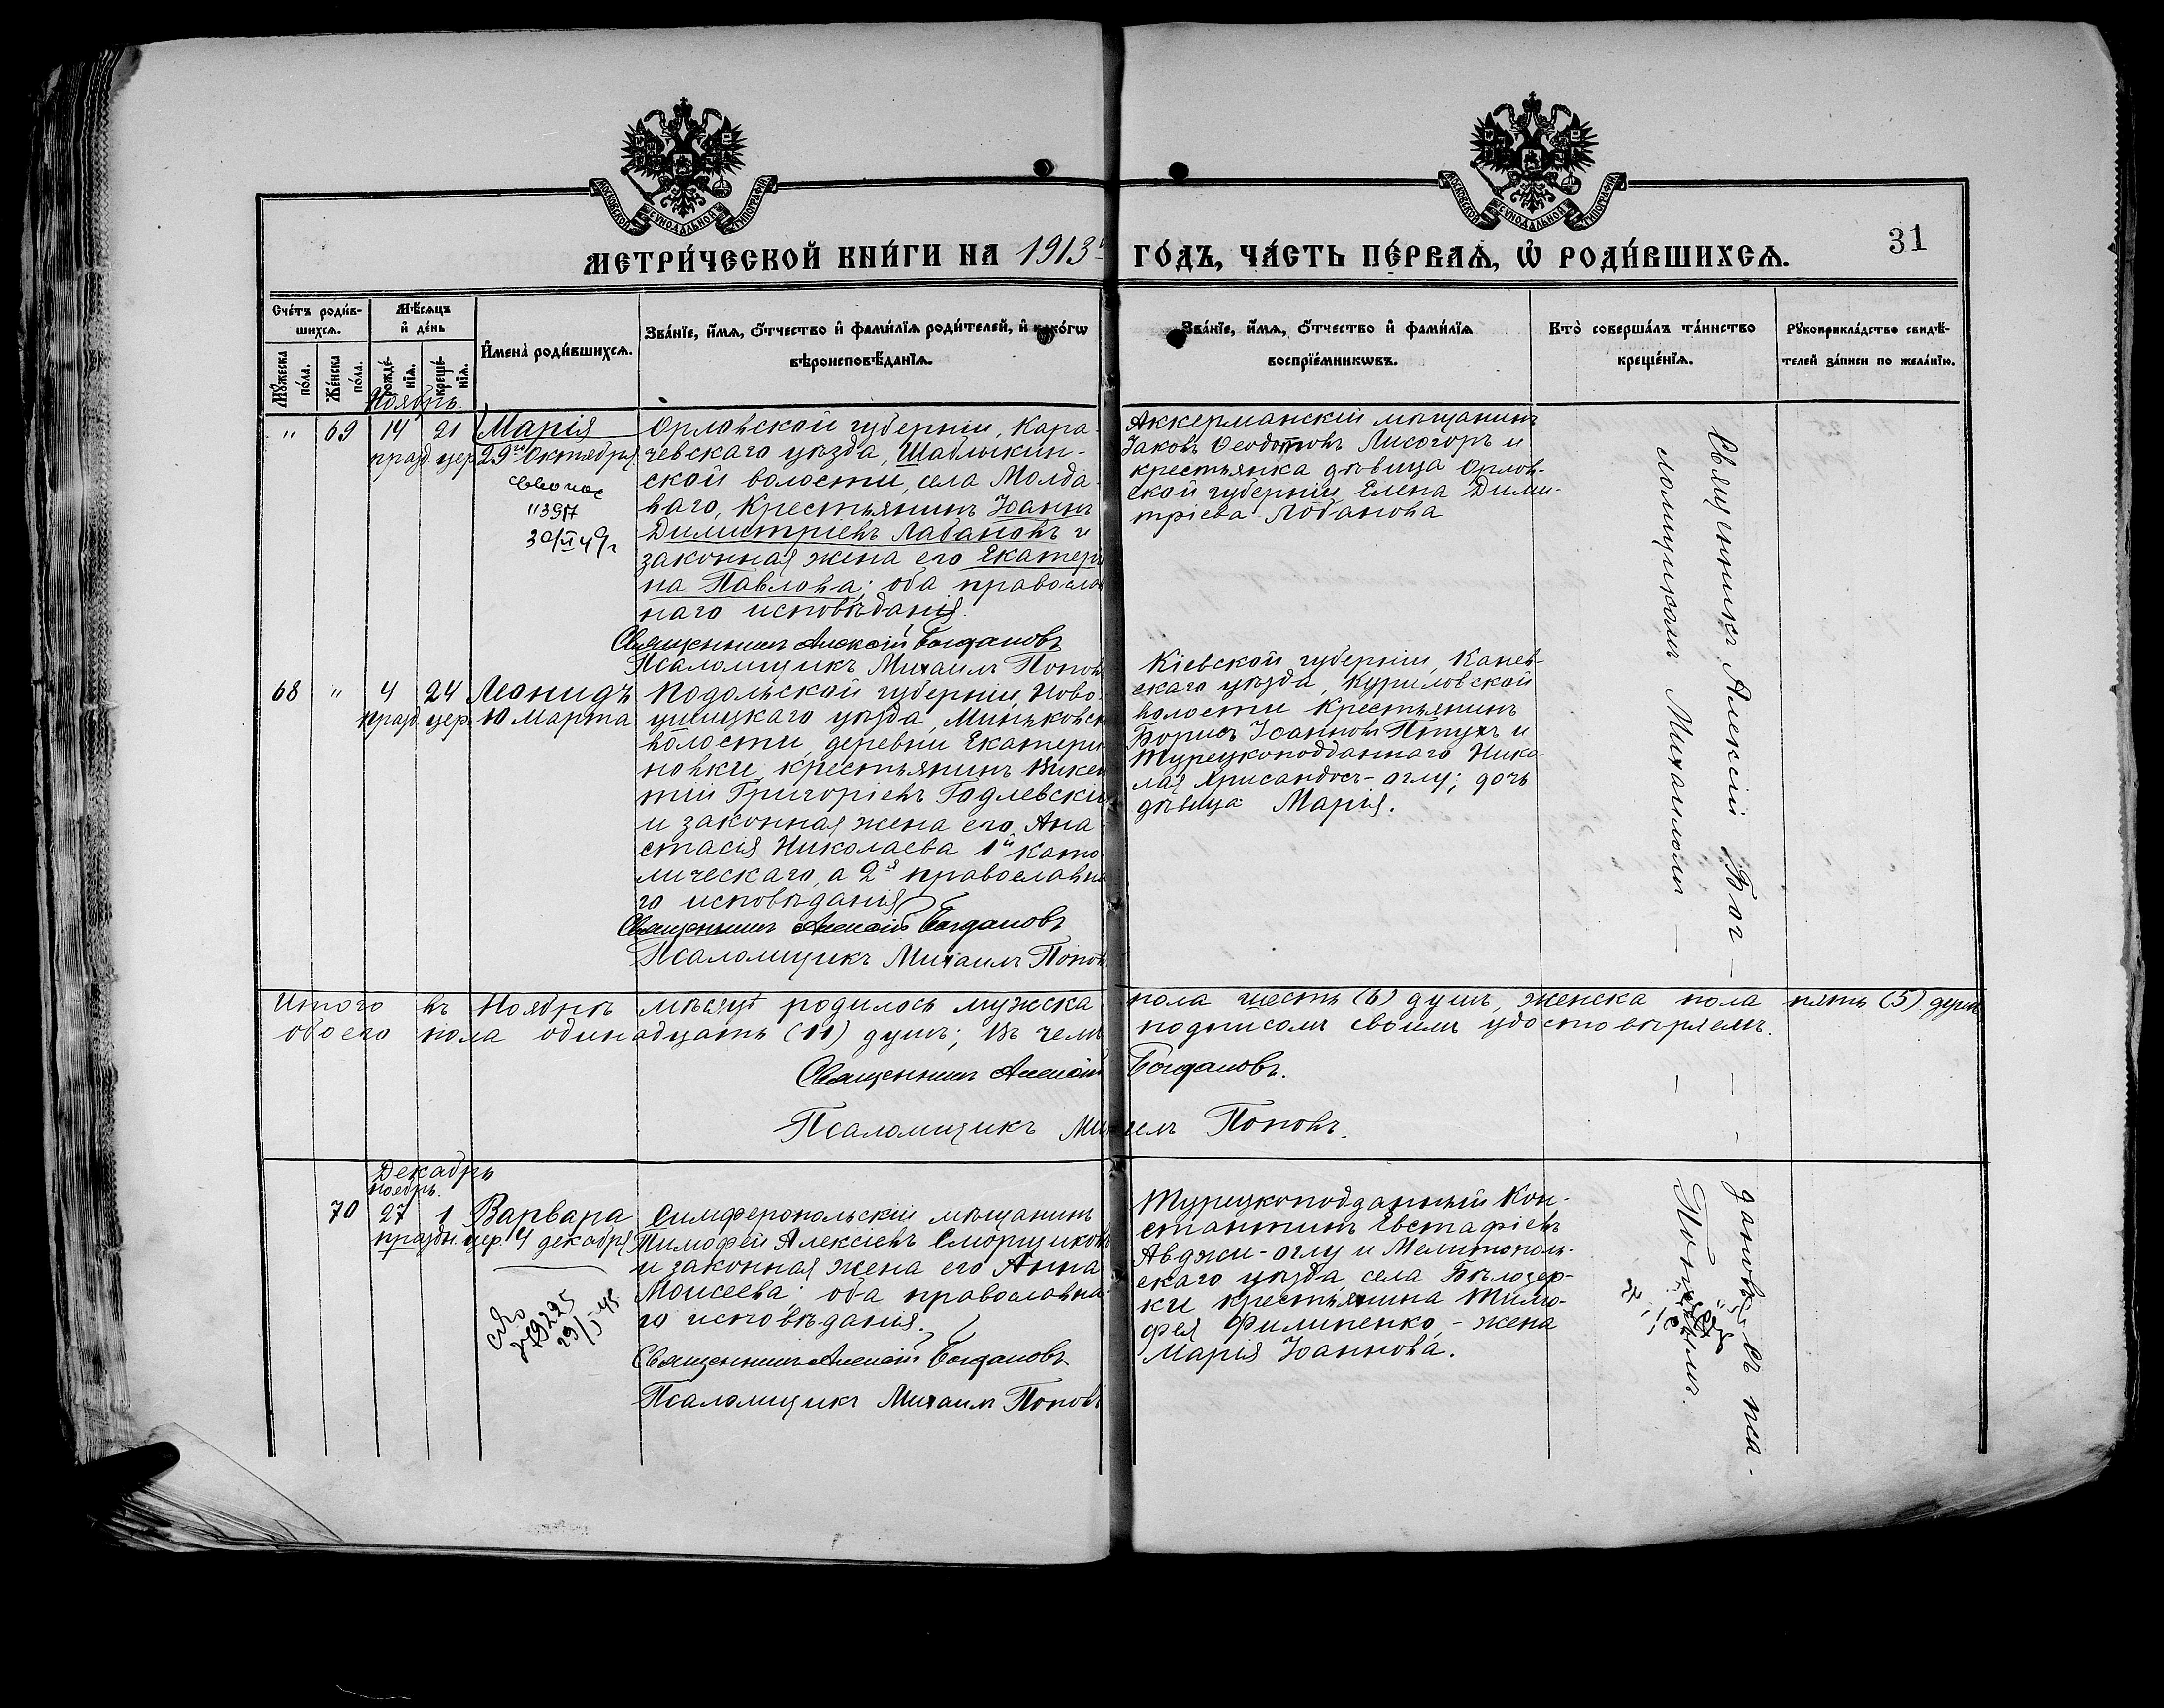 МОСКОВСКОЙ СѴНОДАЛЬНОЙ ТИПОГРАФІИ
МОСКОВСКОЙ СѴНОДАЛЬНОЙ ТИПОГРАФІИ
МЕТРИ́ЧЕСКОЙ КНИ́ГИ НА 1913 ГО́ДЪ, ЧА́СТЬ ПЕ́РВАѦ, Ѡ РОДИ́ВШИХСѦ.
31
Сче́тъ роди́в-
шихсѧ.
Мѣ́сѧцъ
и҆ де́нь
Мꙋ́жеска
по́ла.
Же́нска
по́ла.
рожде́-
нїѧ.
креще́-
нїѧ.
И҆мена̀ роди́вшихсѧ.
Зва́нїе, и҆́мѧ, ѻ҆́тчество и҆ фами́лїѧ роди́телей, и҆ како́гѡ
вѣроисповѣ́данїѧ.
Зва́нїе, и҆́мѧ, ѻ҆́тчество и҆ фами́лїѧ
воспрїе́мникѡвъ.
Кто̀ соверша́лъ та́инство
креще́нїѧ.
Рꙋкоприкла́дство свидѣ́-
телей за́писи по жела́нїю.
Ноябрь.
" 69 14 21 Марія
празд. цер. 29го Октября
30/II 49г
Орловской губерніи, Кара-
чевскаго уѣзда, Шаблыкин-
ской волости, села Молда-
ваго, Крестьянинъ Іоаннъ
Димитріевъ Лабановъ и
законная жена его Екатери
на Павлова; оба православ
наго исповѣданія.
Священникъ Алексій Богдановъ
Псаломщикъ Михаилъ Поповъ
Аккерманскій мѣщанинъ
Іаковъ Феодотовъ Лисогоръ и
крестьянка дѣвица Орлов-
ской губерніи Елена Дими-
тріева Лобанова
68 " 4 24 Леонидъ
празд. цер. 10 Марта
Подольской губерніи, Ново-
ушицкаго уѣзда, Миньковск
волости, деревни Екатери
новки, крестьянинъ Викен
тій Григоріевъ Годлевскій
и законная жена его Ана
стасія Николаева 1й като
лическаго, а 2я православна
го исповѣданія
Священникъ Алексій Богдановъ
Псаломщикъ Михаилъ Поповъ
Кіевской губерніи, Канев-
скаго уѣзда, Куриловской
волости крестьянинъ
Борисъ Іоанновъ Птухъ и
Турецкоподданнаго Нико-
лая Хрисандосъ-оглу; дочь
дѣвица Марія.
Священникъ Алексій Бог-
дановъ съ пса-
ломщикомъ Михаиломъ —
Поповымъ.
Итого въ Ноябрѣ мѣсяцѣ родилось мужска пола шесть (6) душъ, женска пола пять (5) душъ
обоего пола одинадцать (11) душъ; въ чемъ подписомъ своимъ удостовѣряемъ.
Священникъ Алексій Богдановъ.
Псаломщикъ Михаилъ Поповъ.
Декабрь
ноябрь.
70 27 1 Варвара
праздн. цер. 4 декабря
29/I 45
Симферопольскій мѣщанинъ
Тимофей Алексіевъ Сморщиковъ
и законная жена его Анна
Моисеева; оба православна
го исповѣданія.
Священникъ Алексій Богдановъ
Псаломщикъ Михаилъ Поповъ
Турецкоподданный Кон-
стантинъ Евстафіевъ
Авджи-оглу и Мелитополь-
скаго уѣзда, села Бѣлозер-
ки крестьянина Тимо-
фея Филипенко, - жена
Марія Іоаннова.